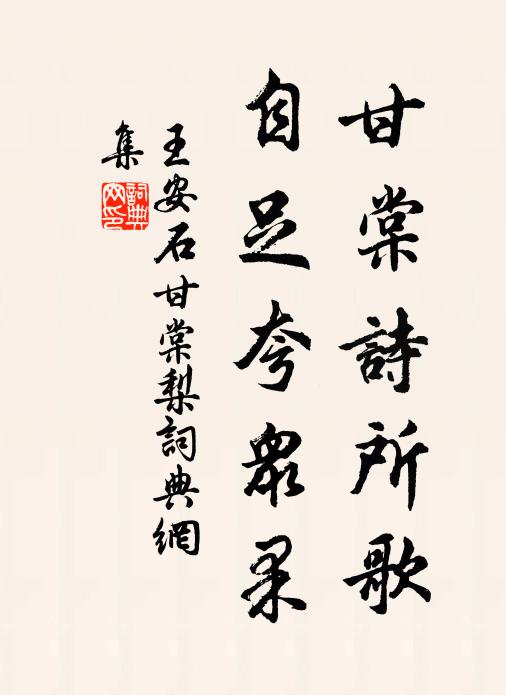 甘棠詩所歌
自足夸眾果
王安石甘棠梨詞典網
集
詞典
网印